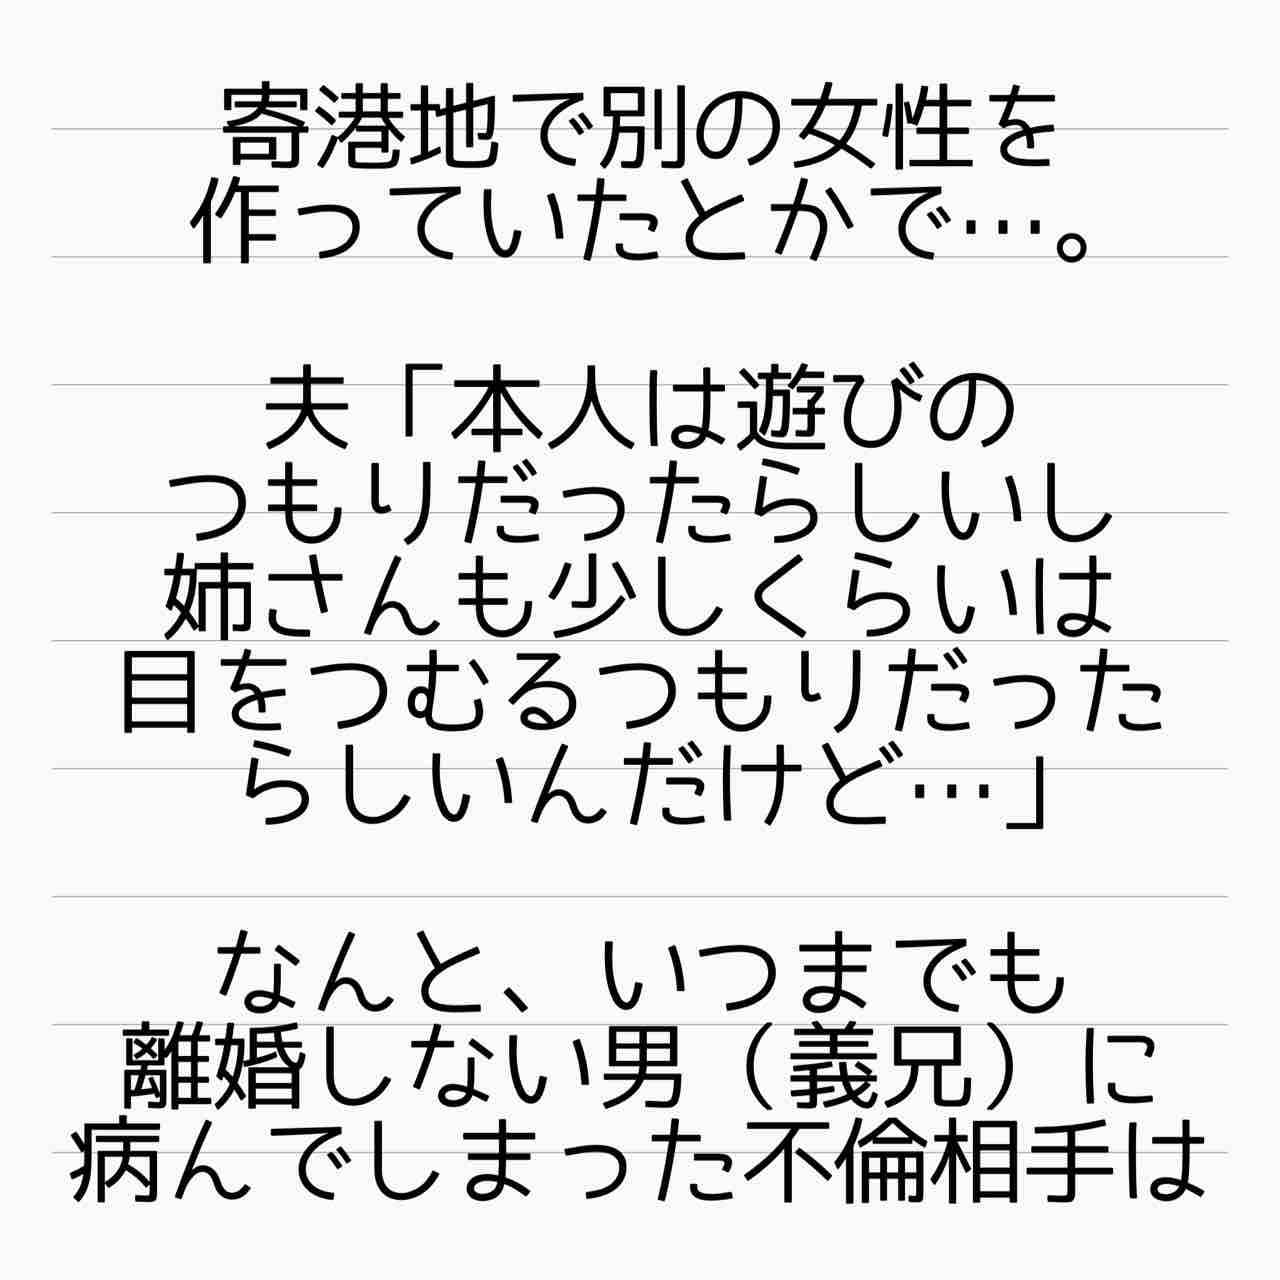 寄港地で別の女性を
作っていたとかで…。
夫「本人は遊びの
つもりだったらしいし
姉さんも少しくらいは
目をつむるつもりだった
らしいんだけど…」
なんと、いつまでも
離婚しない男（義兄）に
病んでしまった不倫相手は